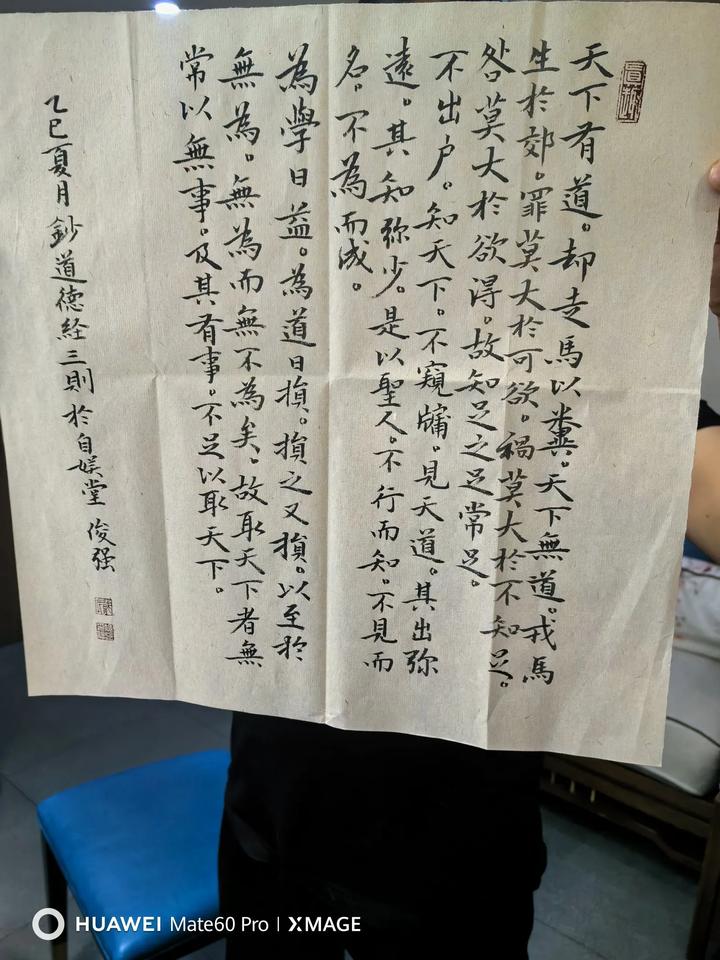 天下有道。却走馬以糞。天下無道。戎馬
生於郊。罪莫大於可欲。禍莫大於不知足。
咎莫大於欲得。故知足之足常足。
不出户。知天下。不窺牖。見天道。其出弥
遠。其知弥少。是以聖人。不行而知。不見而
名。不為而成。
為學日益。為道日損。損之又損。以至於
無為。無為而無不為矣。故取天下者無
常以無事。及其有事。不足以取天下。
乙巳夏月鈔道德経三則於自娱堂 俊强
HUAWEI Mate60 Pro | XMAGE